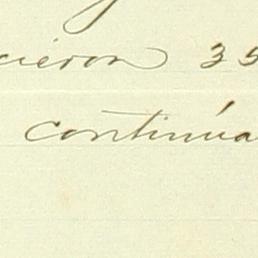 cieron 35
continúa